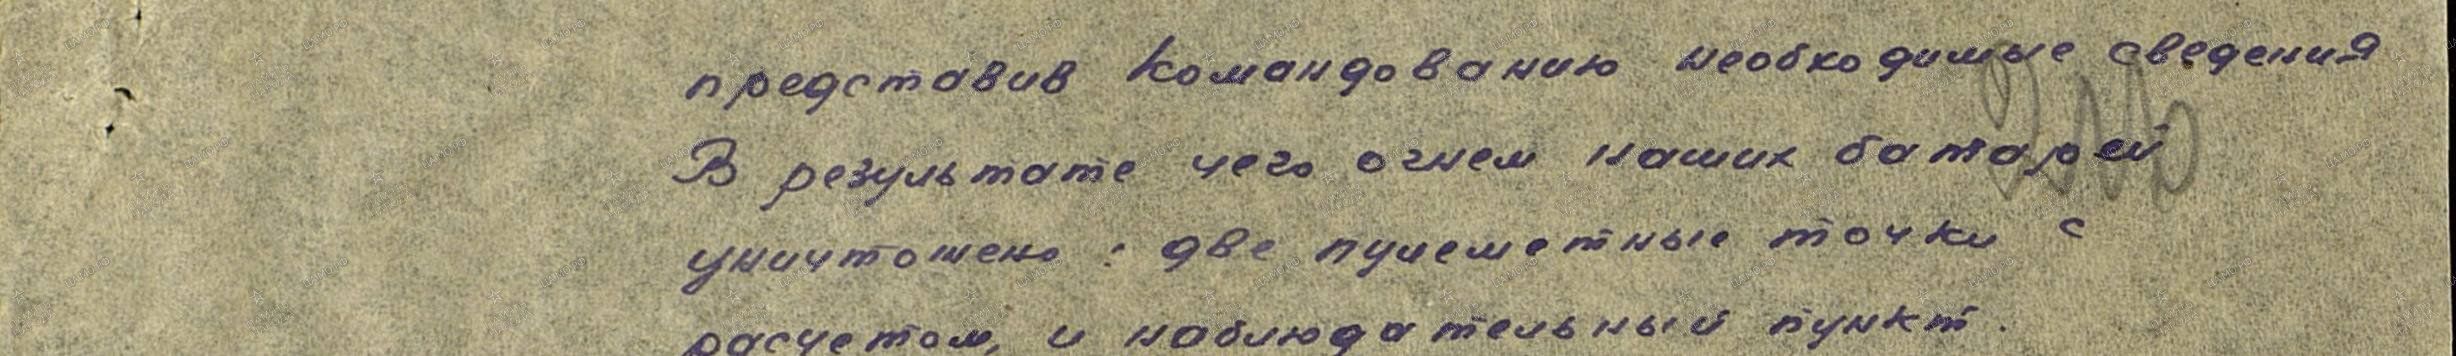 представив командованию необходимые сведения
В результате чего огнем наших батарей
уничтожено: две пулеметные точки с
расчетом, и наблюдательный пункт.